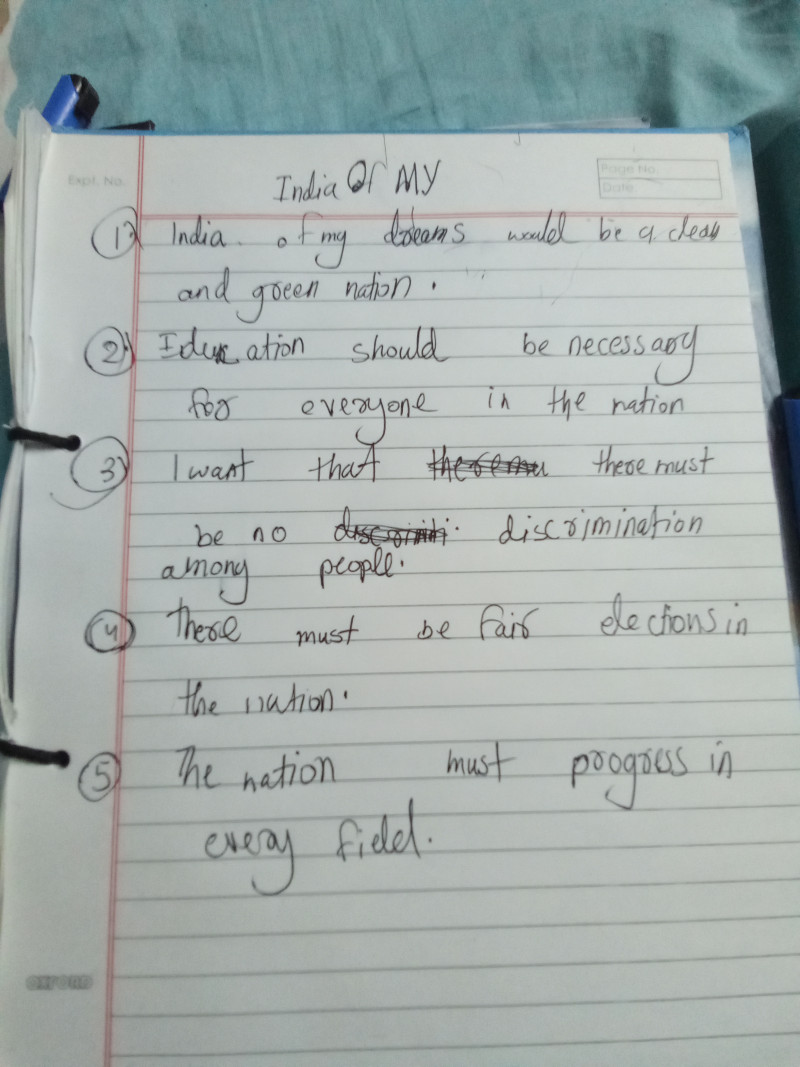 Expt. No.
India Of MY
Page No.
Date
1) India. of my dreams would be a clean
and green nation.
2) Iducation should be necessary
for everyone in the nation
3) I want that there must
be no discrimination
among people.
4 There must be fair elections in
the nation.
5 The nation must progress in
every field.
OXFORD